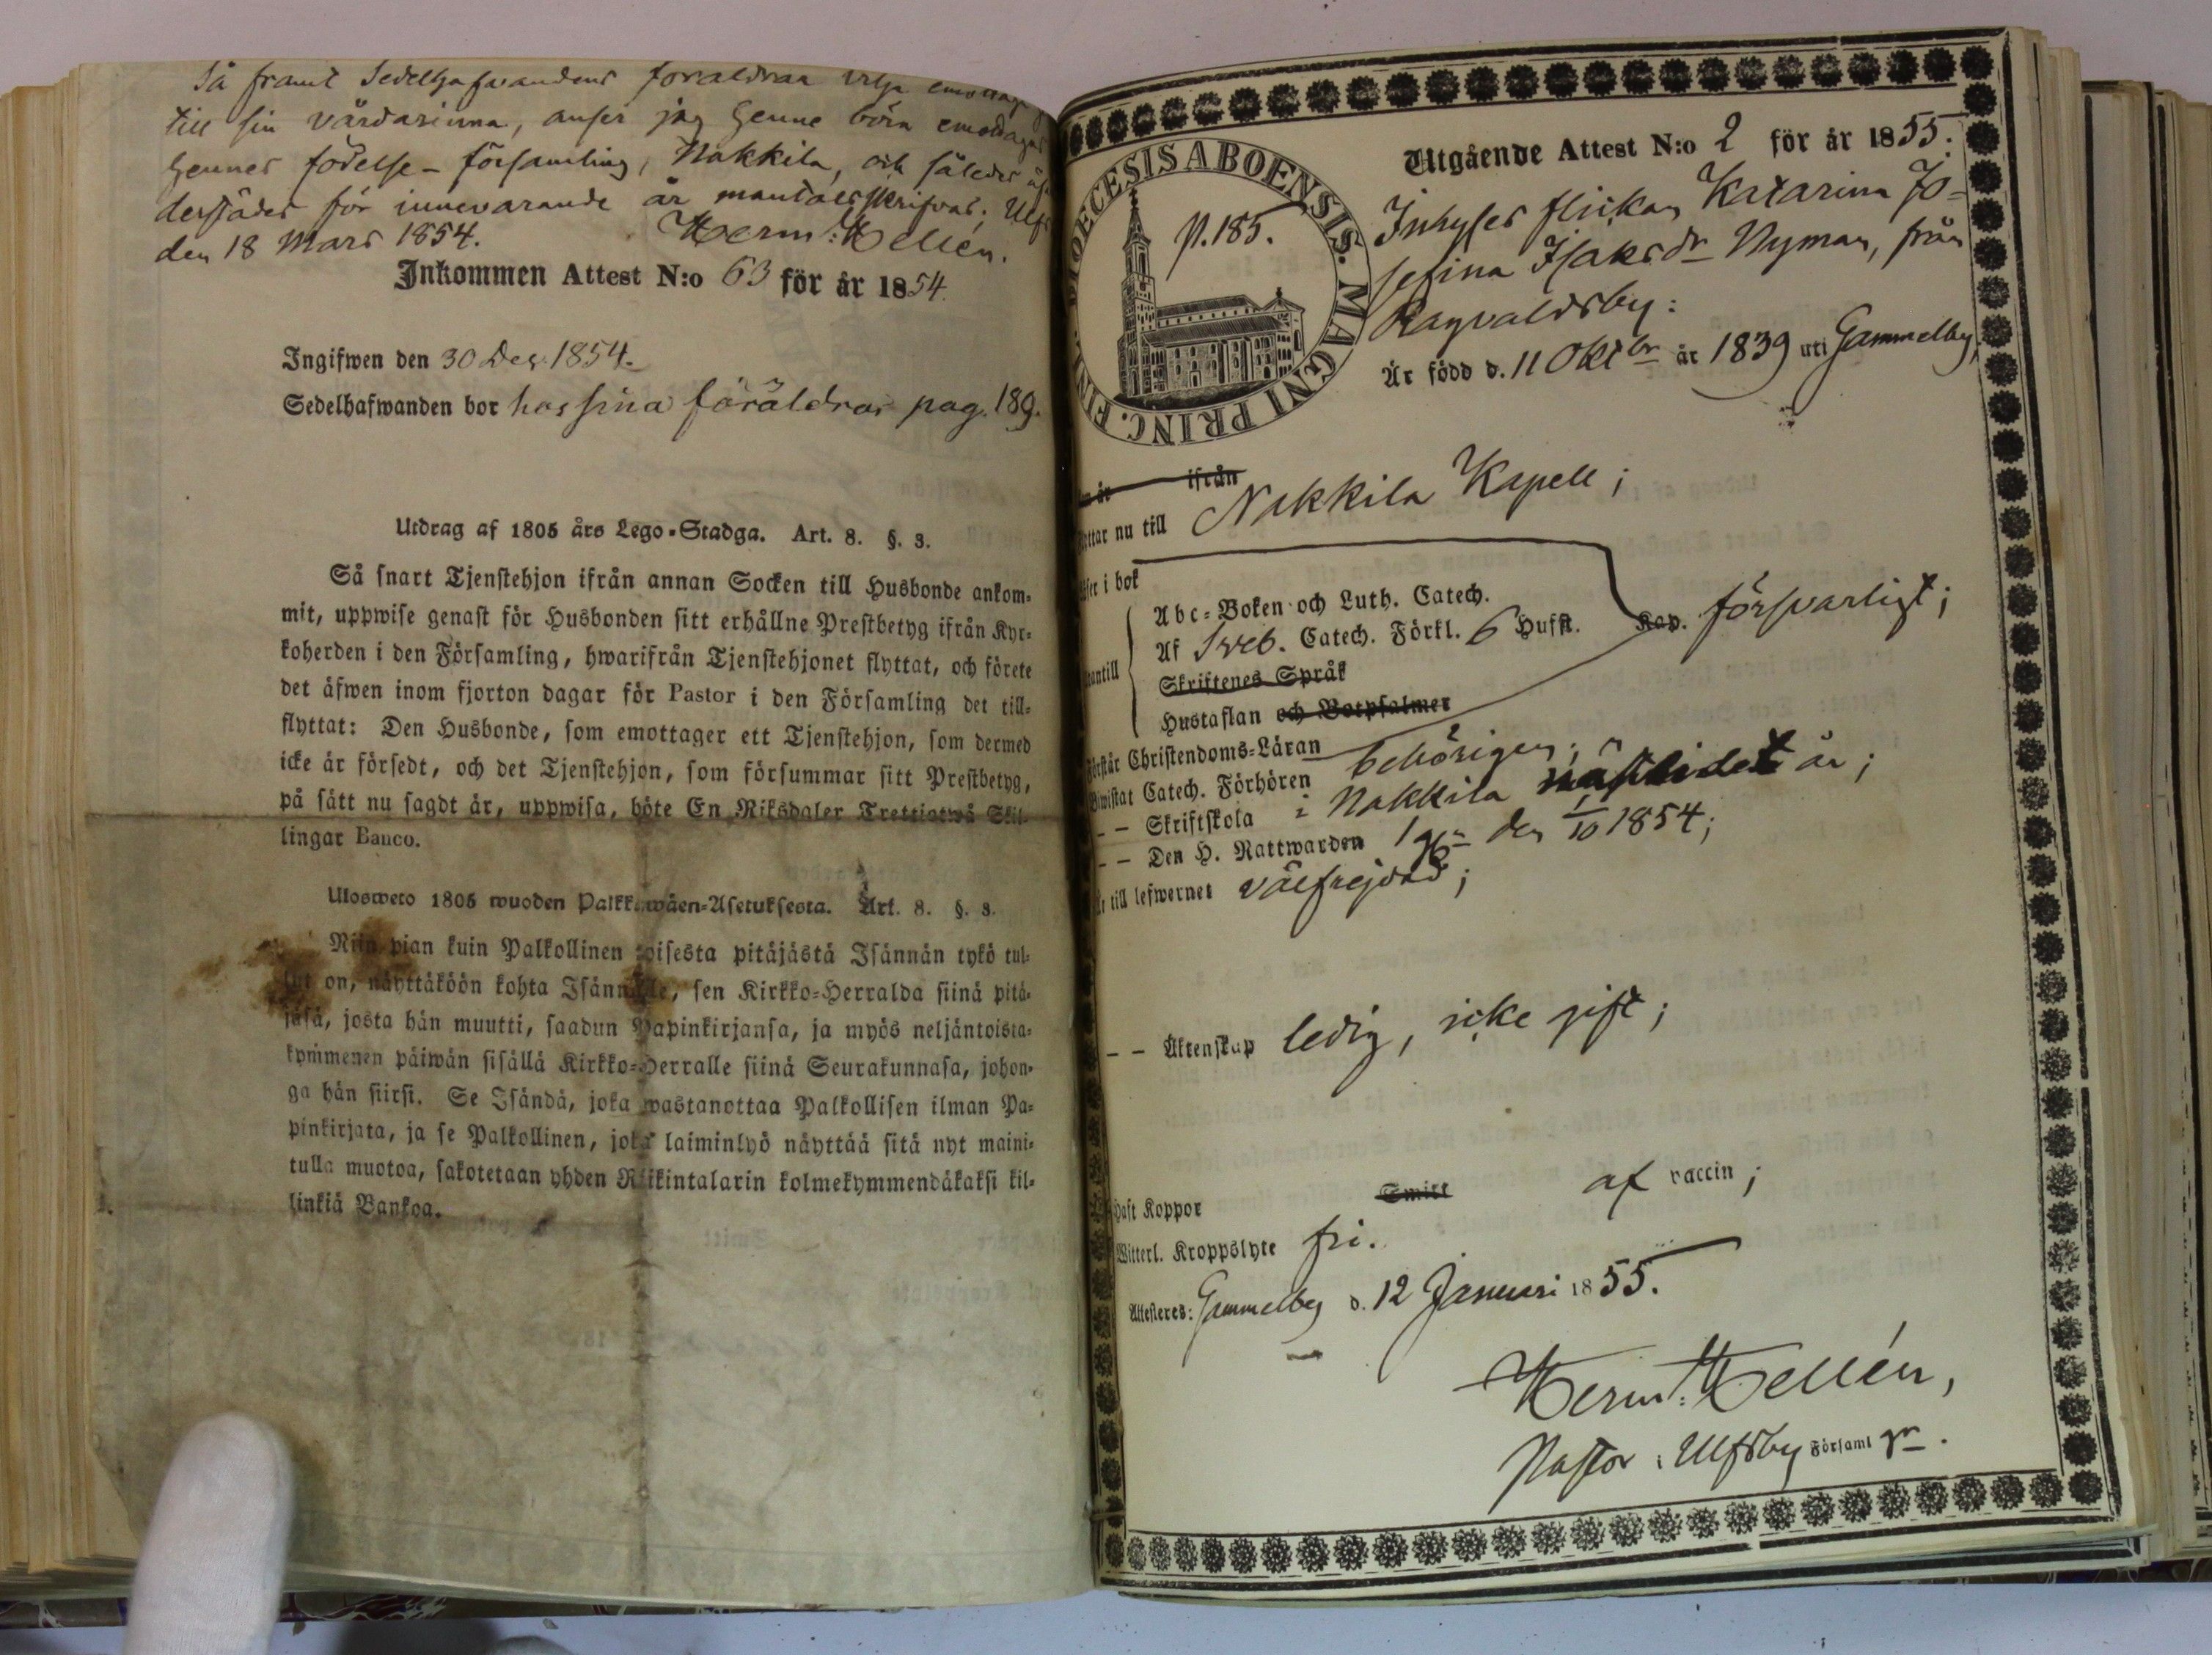 Så framt Sedelhafvandens föräldrar vilja emottaga
till sin vårdarinna, anser jag henne böra emottagas
hennes födelse-församling, Nakkila, och således
derstädes för innevarande år mantalsskrifvas. Ulfs
den 18 Mars 1854. Herm: Hellén.
Inkommen Attest N:o 63 för år 1854.
Ingifwen den 30 Dec. 1854.
Sedelhafwanden bor hos sina föräldrar pag. 189.
Utdrag af 1805 års Lego-Stadga. Art. 8. §. 3.
Så snart Tjenstehjon ifrån annan Socken till Husbonde ankom-
mit, uppwise genast för Husbonden sitt erhållne Prestbetyg ifrån Kyr-
koherden i den Församling, hwarifrån Tjenstehjonet flyttat, och förete
det äfwen inom fjorton dagar för Pastor i den Församling det till-
flyttat: Den Husbonde, som emottager ett Tjenstehjon, som dermed
icke är försedt, och det Tjenstehjon, som försummar sitt Prestbetyg,
på sätt nu sagdt är, uppwisa, böte En Riksdaler Trettiotwå Skil-
lingar Banco.
Ulosweto 1805 wuoden Palkkawäen-Asetuksesta. Art. 8. §. 3.
Niin pian kuin Palkollinen toisesta pitäjästä Isännän tykö tul-
lut on, näyttäköön kohta Isännälle, sen Kirkko-Herralda siinä pitä-
jäsä, josta hän muutti, saadun Papinkirjansa, ja myös neljäntoista-
kymmenen päiwän sisällä Kirkko-Herralle siinä Seurakunnasa, johon-
ga hän siirsi. Se Isändä, joka wastanottaa Palkollisen ilman Pa-
pinkirjata, ja se Palkollinen, joka laiminlyö näyttää sitä nyt maini-
tulla muotoa, sakotetaan yhden Riikintalarin kolmekymmendäkaksi kil-
linkiä Bankoa.
DIOECESIS ABOENSIS. MAGNI PRINC. FINL.
p. 185.
Utgående Attest N:o 2 för år 1855.
Inhyses flickan Katarina Jo-
sefina Isaksdr Nyman, från
Ragvaldsby:
Är född d. 11 Oktbr år 1839 uti Gammelby,
år ifrån
Flyttar nu till Nakkila Kapell;
Läser i bok
Abc-Boken och Luth. Catech.
Af Sveb. Catech. Förkl. 6 Hufst. Kap. försvarligt;
Utantill
Skriftenes Språk
Hustaflan och Botpsalmer
Förstår Christendoms-Läran
Biwistat Catech. Förhören behörigen;
– – Skriftskola i Nakkila nästlidet år;
– – Den H. Nattwarden 1 gn den 1/10 1854;
Är till lefwernet välfrejdad;
– – Äktenskap ledig, icke gift;
Haft Koppor Smitt af vaccin;
Witterl. Kroppslyte fri.
Attesteres: Gammelby d. 12 Januari 1855.
Herm: Hellén,
Pastor i Ulfsby Församl gn.